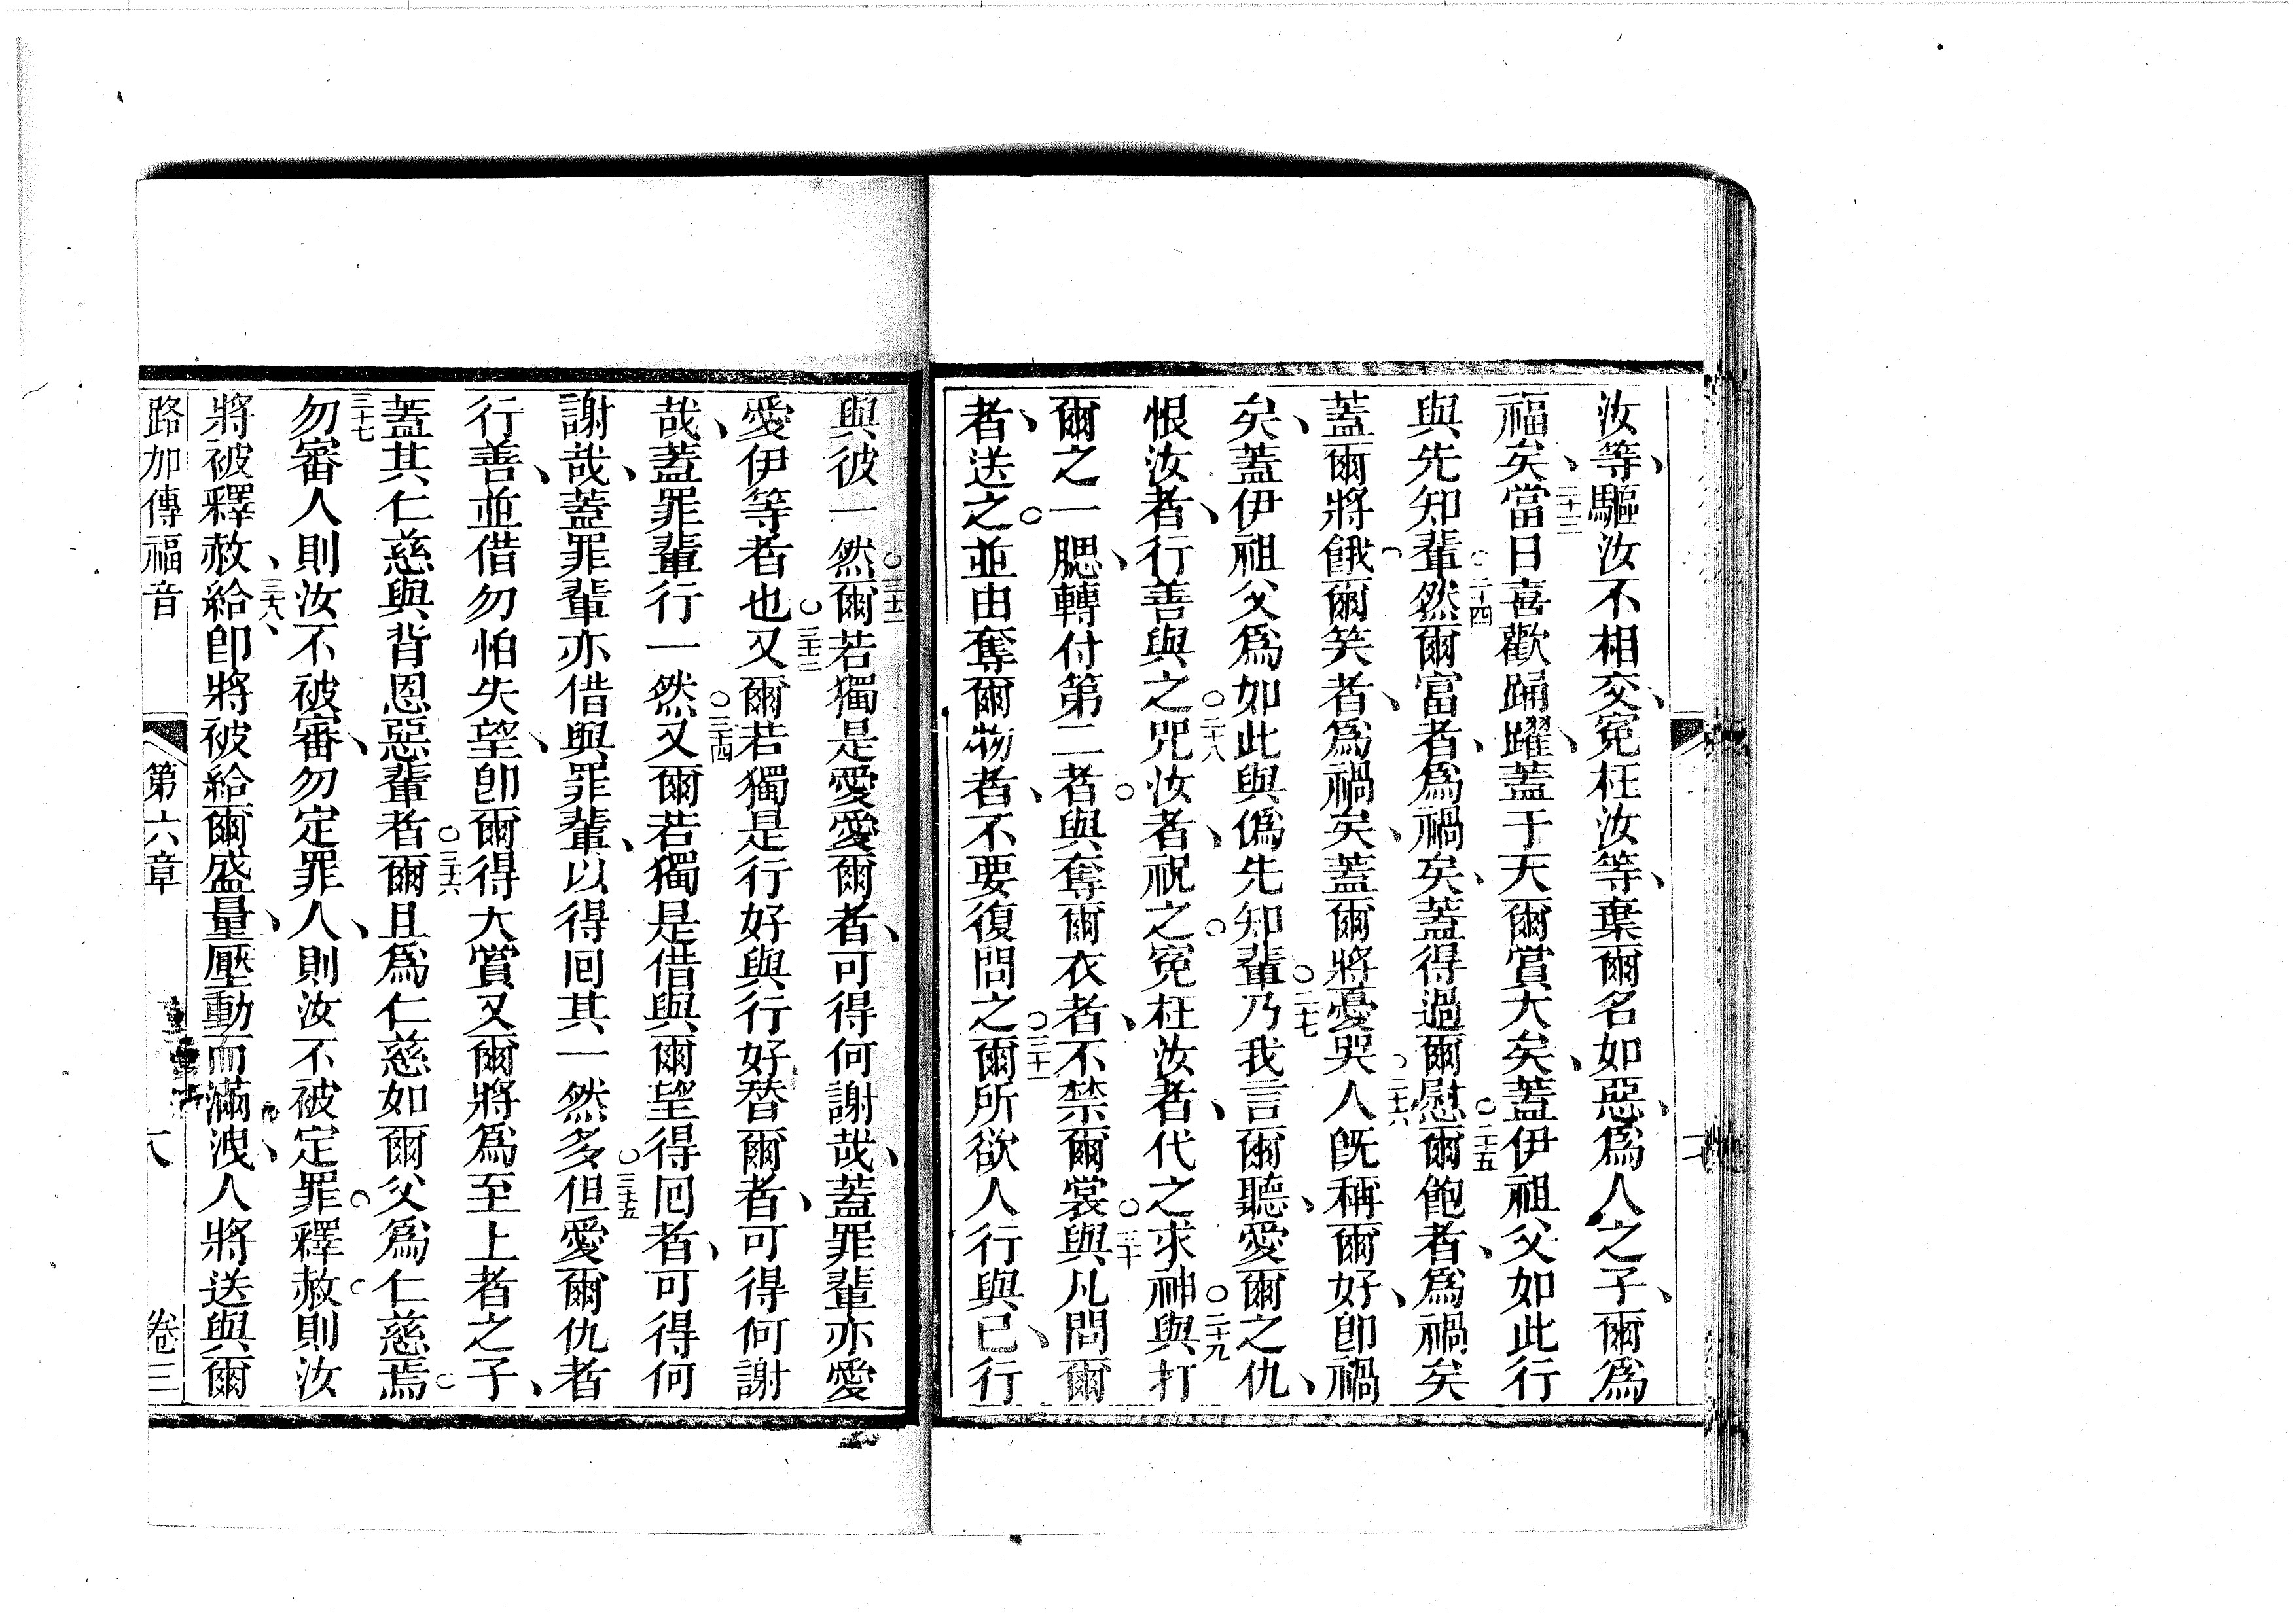 汝等、驅汝不相交、寃枉汝等、棄爾名如惡、爲人之子、爾爲
福矣、二十三當日喜歡踊躍、蓋于天爾賞大矣、蓋伊祖父如此行
與先知輩○二十四然爾富者、爲禍矣、蓋得過爾慰○二十五爾飽者、爲禍矣
蓋爾將餓爾笑者、爲禍矣、蓋爾將憂哭○二十六人既稱爾好、卽禍
矣、蓋伊祖父爲如此與僞先知輩○二十七乃我言爾聽、愛爾之仇、
恨汝者、行善與之○二十八咒汝者、祝之○寃枉汝者、代之求神○二十九與打
爾之一腮、轉付第二者○與奪爾衣者、不禁爾裳○三十與凡問爾
者、送之○並由奪爾物者、不要復問之○三十一爾所欲人行與已、行
與彼一然○三十二爾若獨是愛愛爾者、可得何謝哉、蓋罪輩亦愛
愛伊等者也○三十三又爾若獨是行好與行好替爾者、可得何謝
哉、蓋罪輩行一然○三十四又爾若獨是借與爾望得囘者、可得何
謝哉、蓋罪輩亦借與罪輩、以得囘其一然多○三十五但愛爾仇者
行善、並借勿怕失望、卽爾得大賞又爾將爲至上者之子、
蓋其仁慈與背恩惡輩者○三十六爾且爲仁慈如爾父爲仁慈焉○
三十七勿審人則汝不被審、勿定罪人、則汝不被定罪○釋赦○則汝
將被釋赦、三十八給、卽將被給爾盛量、壓動而滿洩、人將送與爾
路加傳福音 第六章 卷三